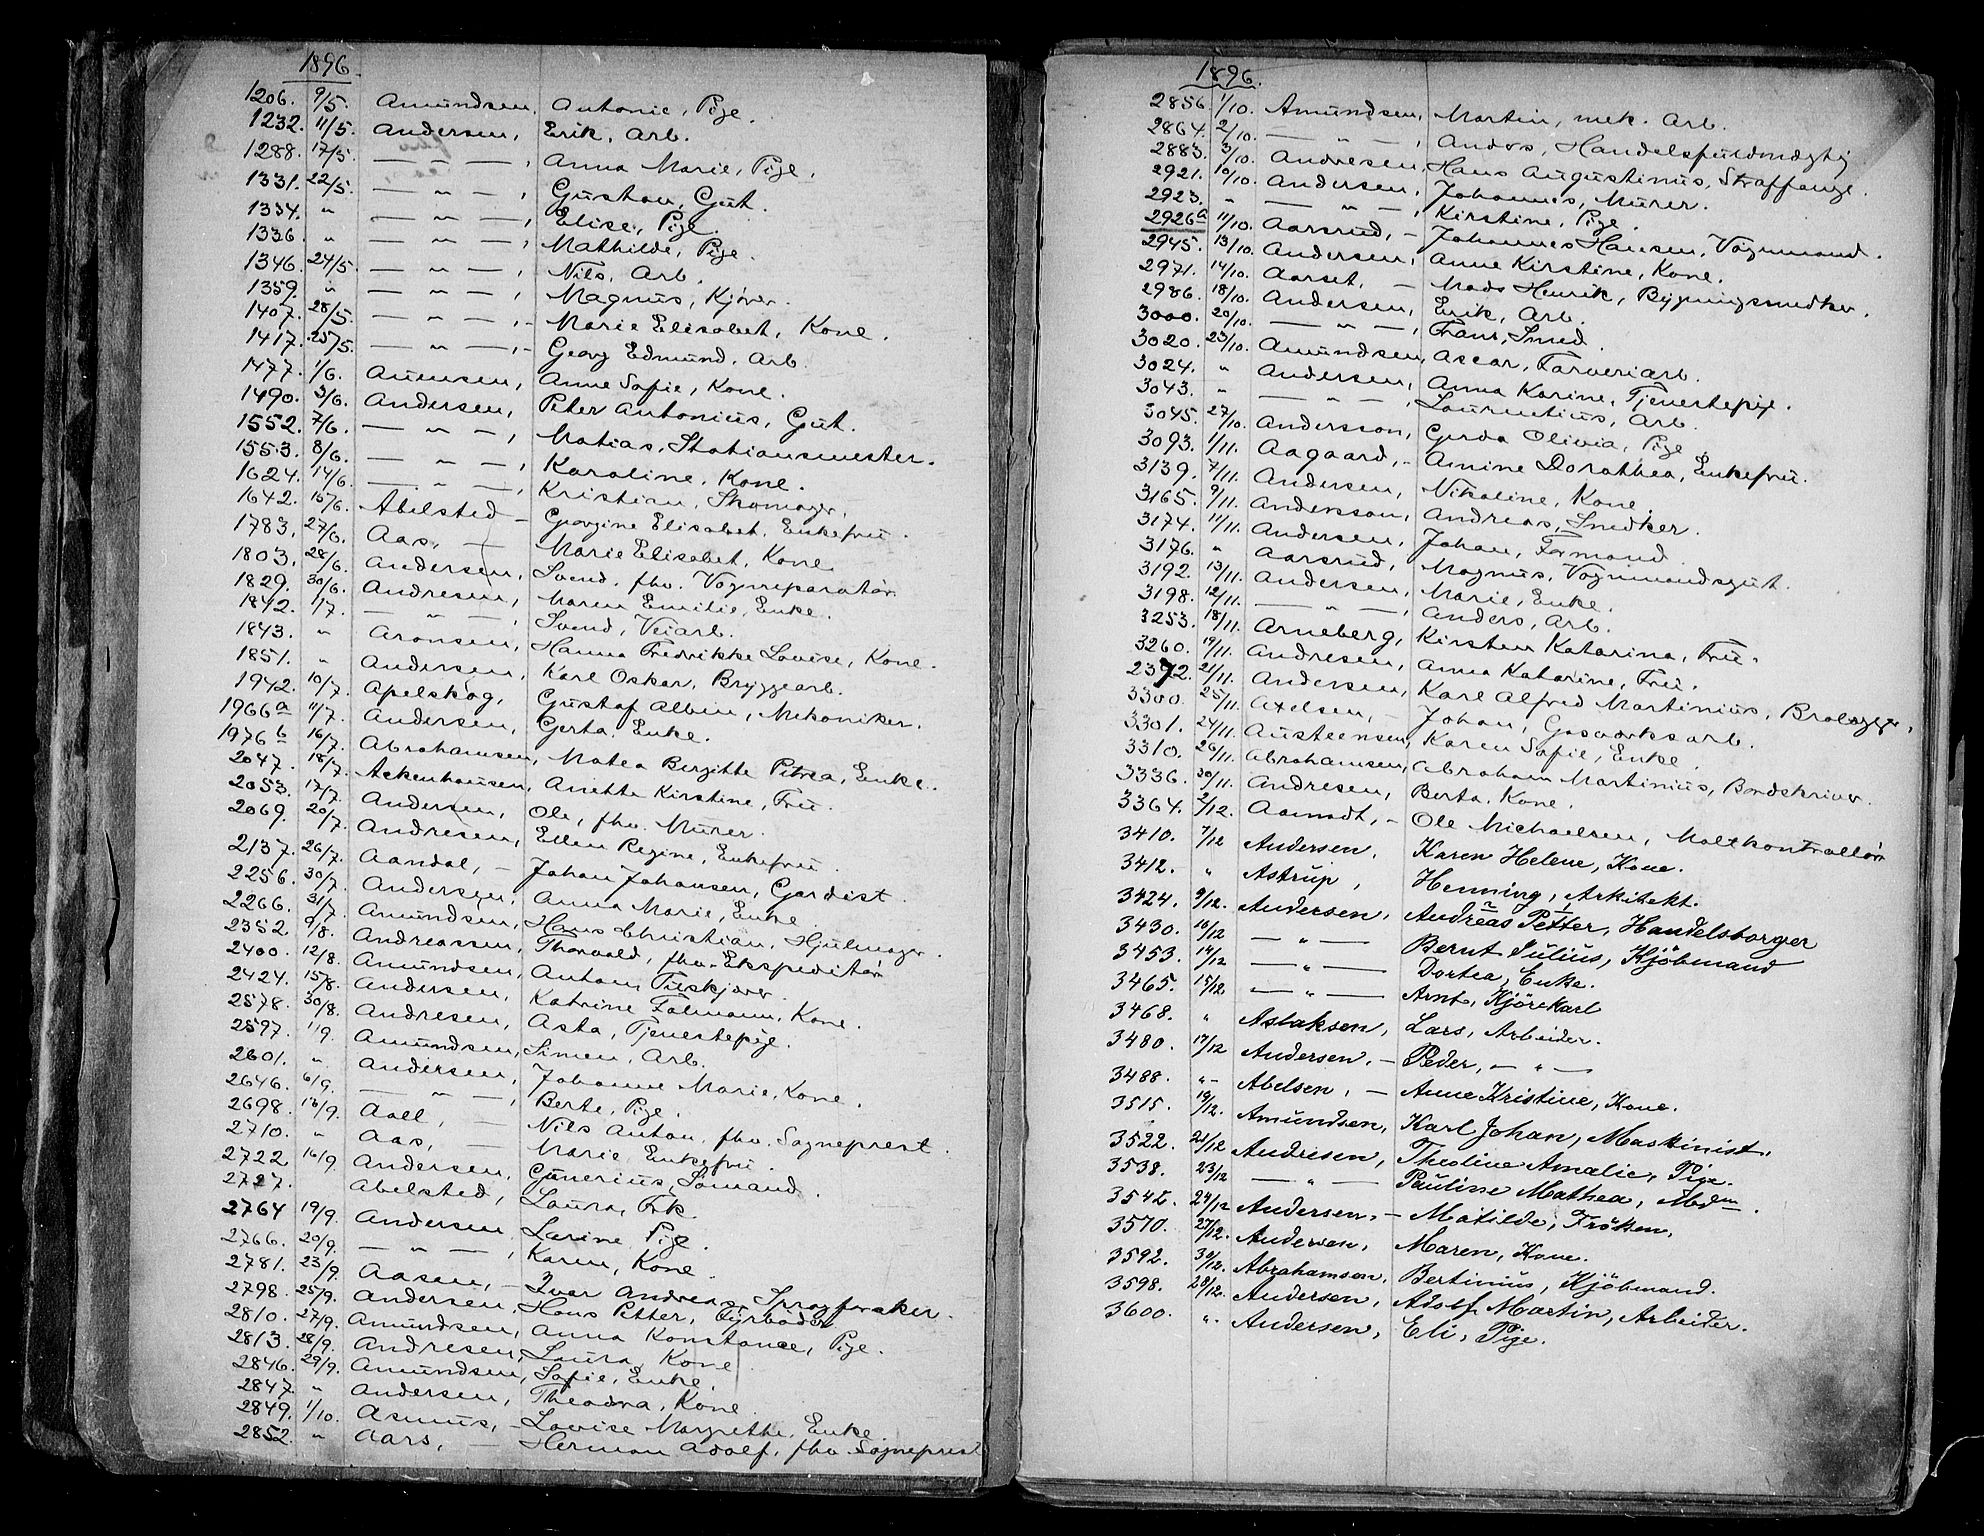 1896.
1206. 9/5. Amundsen, Antonie, Pige.
1232. 11/5. Andersen, Erik, Arb.
1288. 17/5 — „ —, Anna Marie, Pige.
1331. 22/5. — „ —, Gustav, Gut.
1334. „ — „ —, Elise, Pige.
1336. „ — „ —, Mathilde, Pige.
1346. 24/5. — „ —, Nils, Arb.
1359. „ — „ —, Magnus, Kjører.
1407. 28/5. — „ —, Marie Elisabet, Kone.
1417. 25/5. — „ —, Georg Edmund, Arb.
1477. 1/6. Auensen, Anne Sofie, Kone.
1490. 3/6. Andersen, Peter Antonius, Gut.
1552. 7/6. — „ —, Matias, Stationsmester.
1553. 8/6. — „ —, Karoline, Kone.
1624. 14/6. — „ —, Kristian, Skomager.
1642. 16/6. Abelsted — Georgine Elisabet, Enkefru.
1783. 27/6. Aas, — Marie Elisabet, Kone.
1803. 28/6. Andersen, Svend, fhv. Vognreparatør
1829. 30/6. Andresen, Maren Emilie, Enke.
1842. 1/7. — „ —, Svend, Veiarb.
1843. „ Aronsen, Hanna Fredrikke Lovise, Kone.
1851. „ Andersen, Karl Oskar, Bryggearb.
1942. 10/7. Apelskog, Gustaf Albin, Mekaniker.
1966a 11/7. Andersen, Gerta, Enke.
1976b 16/7. Abrahamsen, Matea Birgitte Petrea, Enke.
2047. 18/7. Ackenhausen, Anette Kirstine, Fru.
2053. 17/7. Andersen, Ole, fhv. Murer.
2069. 20/7. Andresen, Ellen Regine, Enkefru.
2137. 26/7. Aandal, — Johan Johansen, Gardist.
2256. 30/7. Andersen, Anna Marie, Enke
2266. 31/7. Amundsen, Hans Christian, Hjulmager.
2352. 9/8. Andreassen, Thorvald, fhv. Ekspeditør
2400. 12/8. Amundsen, Anton, Fiskjører.
2424. 15/8. Andersen, Katrine Falmann, Kone.
2578. 30/8. Andresen, Asta, Tjenestepige.
2597. 1/9. Amundsen, Simen, Arb.
2601. „ Andersen, Johanne Marie, Kone.
2646. 6/9. — „ —, Berte, Pige.
2698. 13/9. Aall, — Nils Anton, fhv. Sogneprest.
2710. „ Aas, — Marie, Enkefru.
2722. 16/9. Andersen, Gunerius, Sømand.
2727. Abelsted, Laura, Frk.
2764 19/9. Andersen, Larine, Pige.
2766. 20/9. — „ —, Karen, Kone.
2781. 23/9. Aasen, — Ivar Andreas, Sprogforsker.
2798. 25/9. Andersen, Hans Petter, Fyrbøder
2810. 27/9. Amundsen, Anna Konstance, Pige.
2813. 28/9. Andresen, Laura, Kone
2846. 29/9. Amundsen, Sofie, Enke.
2847. „ Andersen, Theodora, Kone
2849. 1/10. Asmus, — Lovise Margrethe, Enke.
2852. „ Aars, — Herman Adolf, fhv. Sogneprest
1896.
2856. 1/10. Amundsen, Martin, mek. Arb.
2864. 2/10. — „ —, Anders, Handelsfuldmægtig
2883. 3/10. Andresen, Hans Augustinus, Straffange.
2921. 10/10. Andersen, Johannes, Murer.
2923. „ — „ —, Kirstine, Pige.
2926a 11/10. Aarsrud, — Johannes Hansen, Vognmand.
2945. 13/10. Andersen, Anne Kirstine, Kone.
2971. 14/10. Aarset, — Mads Henrik, Bygningssnedker.
2986. 18/10. Andersen, Erik, Arb.
3000. 20/10. — „ —, Frans, Smed.
3020. 23/10. Amundsen, Oscar, Farveriarb.
3024. „ Andersen, Anna Karine, Tjenestepige.
3043. „ — „ —, Laurentius, Arb.
3045. 27/10. Andersson, Gerda Olivia, Pige
3093. 1/11. Aagaard, — Amine Dorothea, Enkefru.
3139. 7/11. Andersen, Nikoline, Kone
3165. 9/11. Andersson, Andreas, Snedker.
3174. 11/11. Andersen, Johan, Formand.
3176. „ Aarsrud, Magnus, Vognmandsgut.
3192. 13/11. Andersen, Marie, Enke.
3198. 12/11. — „ —, Anders, Arb.
3253. 18/11. Arneberg, Kirsten Katarina, Fru.
3260. 19/11. Andresen, Anna Katarine, Fru.
2372. 21/11. Andersen, Karl Alfred Martinius, Brolægger,
3300. 25/11. Axelsen, — Johan, Gasværksarb.
3301. 24/11. Austeensen, Karen Sofie, Enke.
3310. 26/11. Abrahamsen, Abraham Martinius, Bordskriver.
3336. 30/11. Andresen, Berta, Kone.
3364. 2/12. Aamodt, — Ole Michaelsen, Maltkontrollør
3410. 7/12 Andersen, Karen Helene, Kone.
3412. „ Astrup, Henning, Arkitekt.
3424. 9/12. Andersen, Andreas Petter, Handelsborger
3430. 10/12 — „ — Bernt Julius, Kjöbmand
3453. 14/12 — „ — Dortea, Enke.
3465. 15/12. — „ — Arnt, Kjörekarl
3468. „ Aslaksen, Lars, Arbeider.
3480. 17/12 Andersen, — Peder, — „ —
3488. „- Abelsen, — Anne Kristine, Kone.
3515. 19/12. Amundsen, Karl Johan, Maskinist.
3522. 21/12 Andresen, Theoline Amalie, Pige.
3538. 23/12 — „ — Pauline Mathea, Mdm.
3542. 24/12 Andersen, — Matilde, Fröken.
3570. 27/12. Andersen, Maren, Kone.
3592. 30/12. Abrahamsen, Bertinius, Kjöbmand.
3598. 28/12. Andersen, Adolf Martin, Arbeider.
3600. „. Andersen, Eli, Pige.